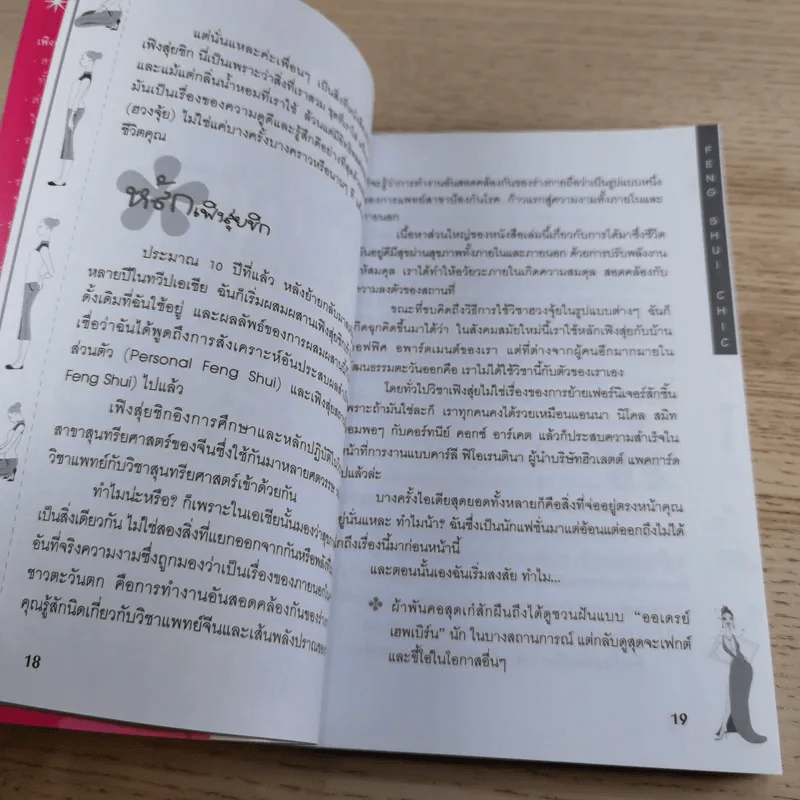 แต่นั่นแหละค่ะเพื่อนๆ เป็นสิ่งที่
เฟิงสุ่ยชิก นี่เป็นเพราะว่าสิ่งที่เราสวม
และแม้แต่กลิ่นน้ำหอมที่เราใช้ ล้วนแต่
มันเป็นเรื่องของความดูดีและรู้สึกดีอย่างที่สุด
(ฮวงจุ้ย) ไม่ใช่แค่บางครั้งบางคราวหรือนานๆ ที
ชีวิตคุณ
หลักเฟิงสุ่ยชิก
ประมาณ 10 ปีที่แล้ว หลังย้ายกลับมา
หลายปีในทวีปเอเชีย ฉันก็เริ่มผสมผสานเฟิงสุ่ยชิก
ดั้งเดิมที่ฉันใช้อยู่ และผลลัพธ์ของการผสมผสาน
เชื่อว่าฉันได้พูดถึงการสังเคราะห์อันประสบผล
ส่วนตัว (Personal Feng Shui) และเฟิงสุ่ย
Feng Shui) ไปแล้ว
เฟิงสุ่ยชิกอิงการศึกษาและหลักปฏิบัติ
สาขาสุนทรียศาสตร์ของจีนซึ่งใช้กันมาหลายศตวรรษ
วิชาแพทย์กับวิชาสุนทรียศาสตร์เข้าด้วยกัน
ทำไมน่ะหรือ? ก็เพราะในเอเชียนั้นมองว่า
เป็นสิ่งเดียวกัน ไม่ใช่สองสิ่งที่แยกออกจากกันหรือ
อันที่จริงความงามซึ่งถูกมองว่าเป็นเรื่องของภายนอก
ชาวตะวันตก คือการทำงานอันสอดคล้องกันของร่าง
คุณรู้สักนิดเกี่ยวกับวิชาแพทย์จีนและเส้นพลังปราณ
18
จะรู้ว่าการทำงานอันสอดคล้องกันของร่างกายถือว่าเป็นรูปแบบหนึ่ง
ของการแพทย์สาขาป้องกันโรค ก้าวแรกสู่ความงามทั้งภายในและ
ภายนอก
เนื้อหาส่วนใหญ่ของหนังสือเล่มนี้เกี่ยวกับการได้มาซึ่งชีวิต
อันอยู่ดีมีสุขผ่านสุขภาพทั้งภายในและภายนอก ด้วยการปรับพลังงาน
ให้สมดุล เราได้ทำให้อวัยวะภายในเกิดความสมดุล สอดคล้องกับ
ความลงตัวของสถานที่
ขณะที่ขบคิดถึงวิธีการใช้วิชาฮวงจุ้ยในรูปแบบต่างๆ ฉันก็
เกิดฉุกคิดขึ้นมาได้ว่า ในสังคมสมัยใหม่นี้เราใช้หลักเฟิงสุ่ยกับบ้าน
ออฟฟิศ อพาร์ตเมนต์ของเรา แต่ที่ต่างจากผู้คนอีกมากมายใน
วัฒนธรรมตะวันออกคือ เราไม่ได้ใช้วิชานี้กับตัวของเราเอง
โดยทั่วไปวิชาเฟิงสุ่ยไม่ใช่เรื่องของการย้ายเฟอร์นิเจอร์สักชิ้น
เพราะถ้ามันใช่ละก็ เราทุกคนคงได้รวยเหมือนแอนนา นิโคล สมิท
ผอมพอๆ กับคอร์ทนีย์ คอกซ์ อาร์เคต แล้วก็ประสบความสำเร็จใน
หน้าที่การงานแบบคาร์ลี ฟิโอเรนตินา ผู้นำบริษัทฮิวเลตต์ แพคการ์ด
ไปแล้วล่ะ
บางครั้งไอเดียสุดยอดทั้งหลายก็คือสิ่งที่จ่ออยู่ตรงหน้าคุณ
อยู่นั่นแหละ ทำไมน้า? ฉันซึ่งเป็นนักแฟชั่นมาแต่อ้อนแต่ออกถึงไม่ได้
นึกถึงเรื่องนี้มาก่อนหน้านี้
และตอนนั้นเองฉันเริ่มสงสัย ทำไม...
ผ้าพันคอสุดเก๋สักผืนถึงได้ดูชวนฝันแบบ “ออเดรย์
เฮพเบิร์น” นัก ในบางสถานการณ์ แต่กลับดูสุดจะเฟกต์
และขี้โอ่ในโอกาสอื่นๆ
19
FENG SHUI CHIC